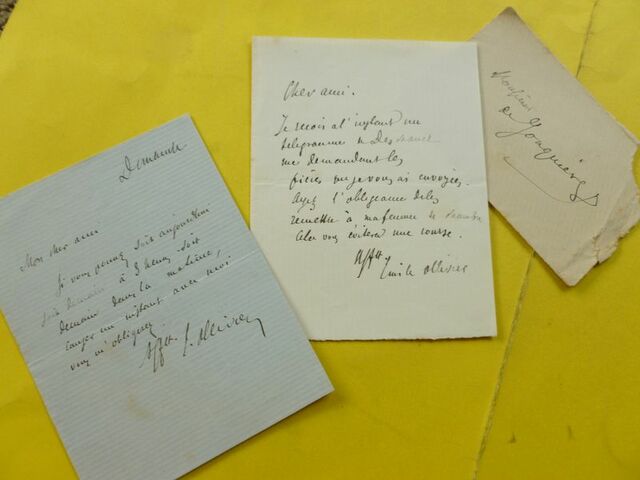 Dimanche
Mon cher ami
Si vous pouvez soit aujourd'hui
soit demain à 3 heures soit
demain dans la matinée,
causer un instant avec moi
vous m'obligerez
Afft. E. Ollivier
Cher ami.
Je reçois à l'instant un
télégramme de
me demandant les
pièces que je vous ai envoyées.
Ayez l'obligeance de les
remettre à ma femme de chambre
Cela vous évitera une course.
Afft
Emile Ollivier
Monsieur
de Jonquières